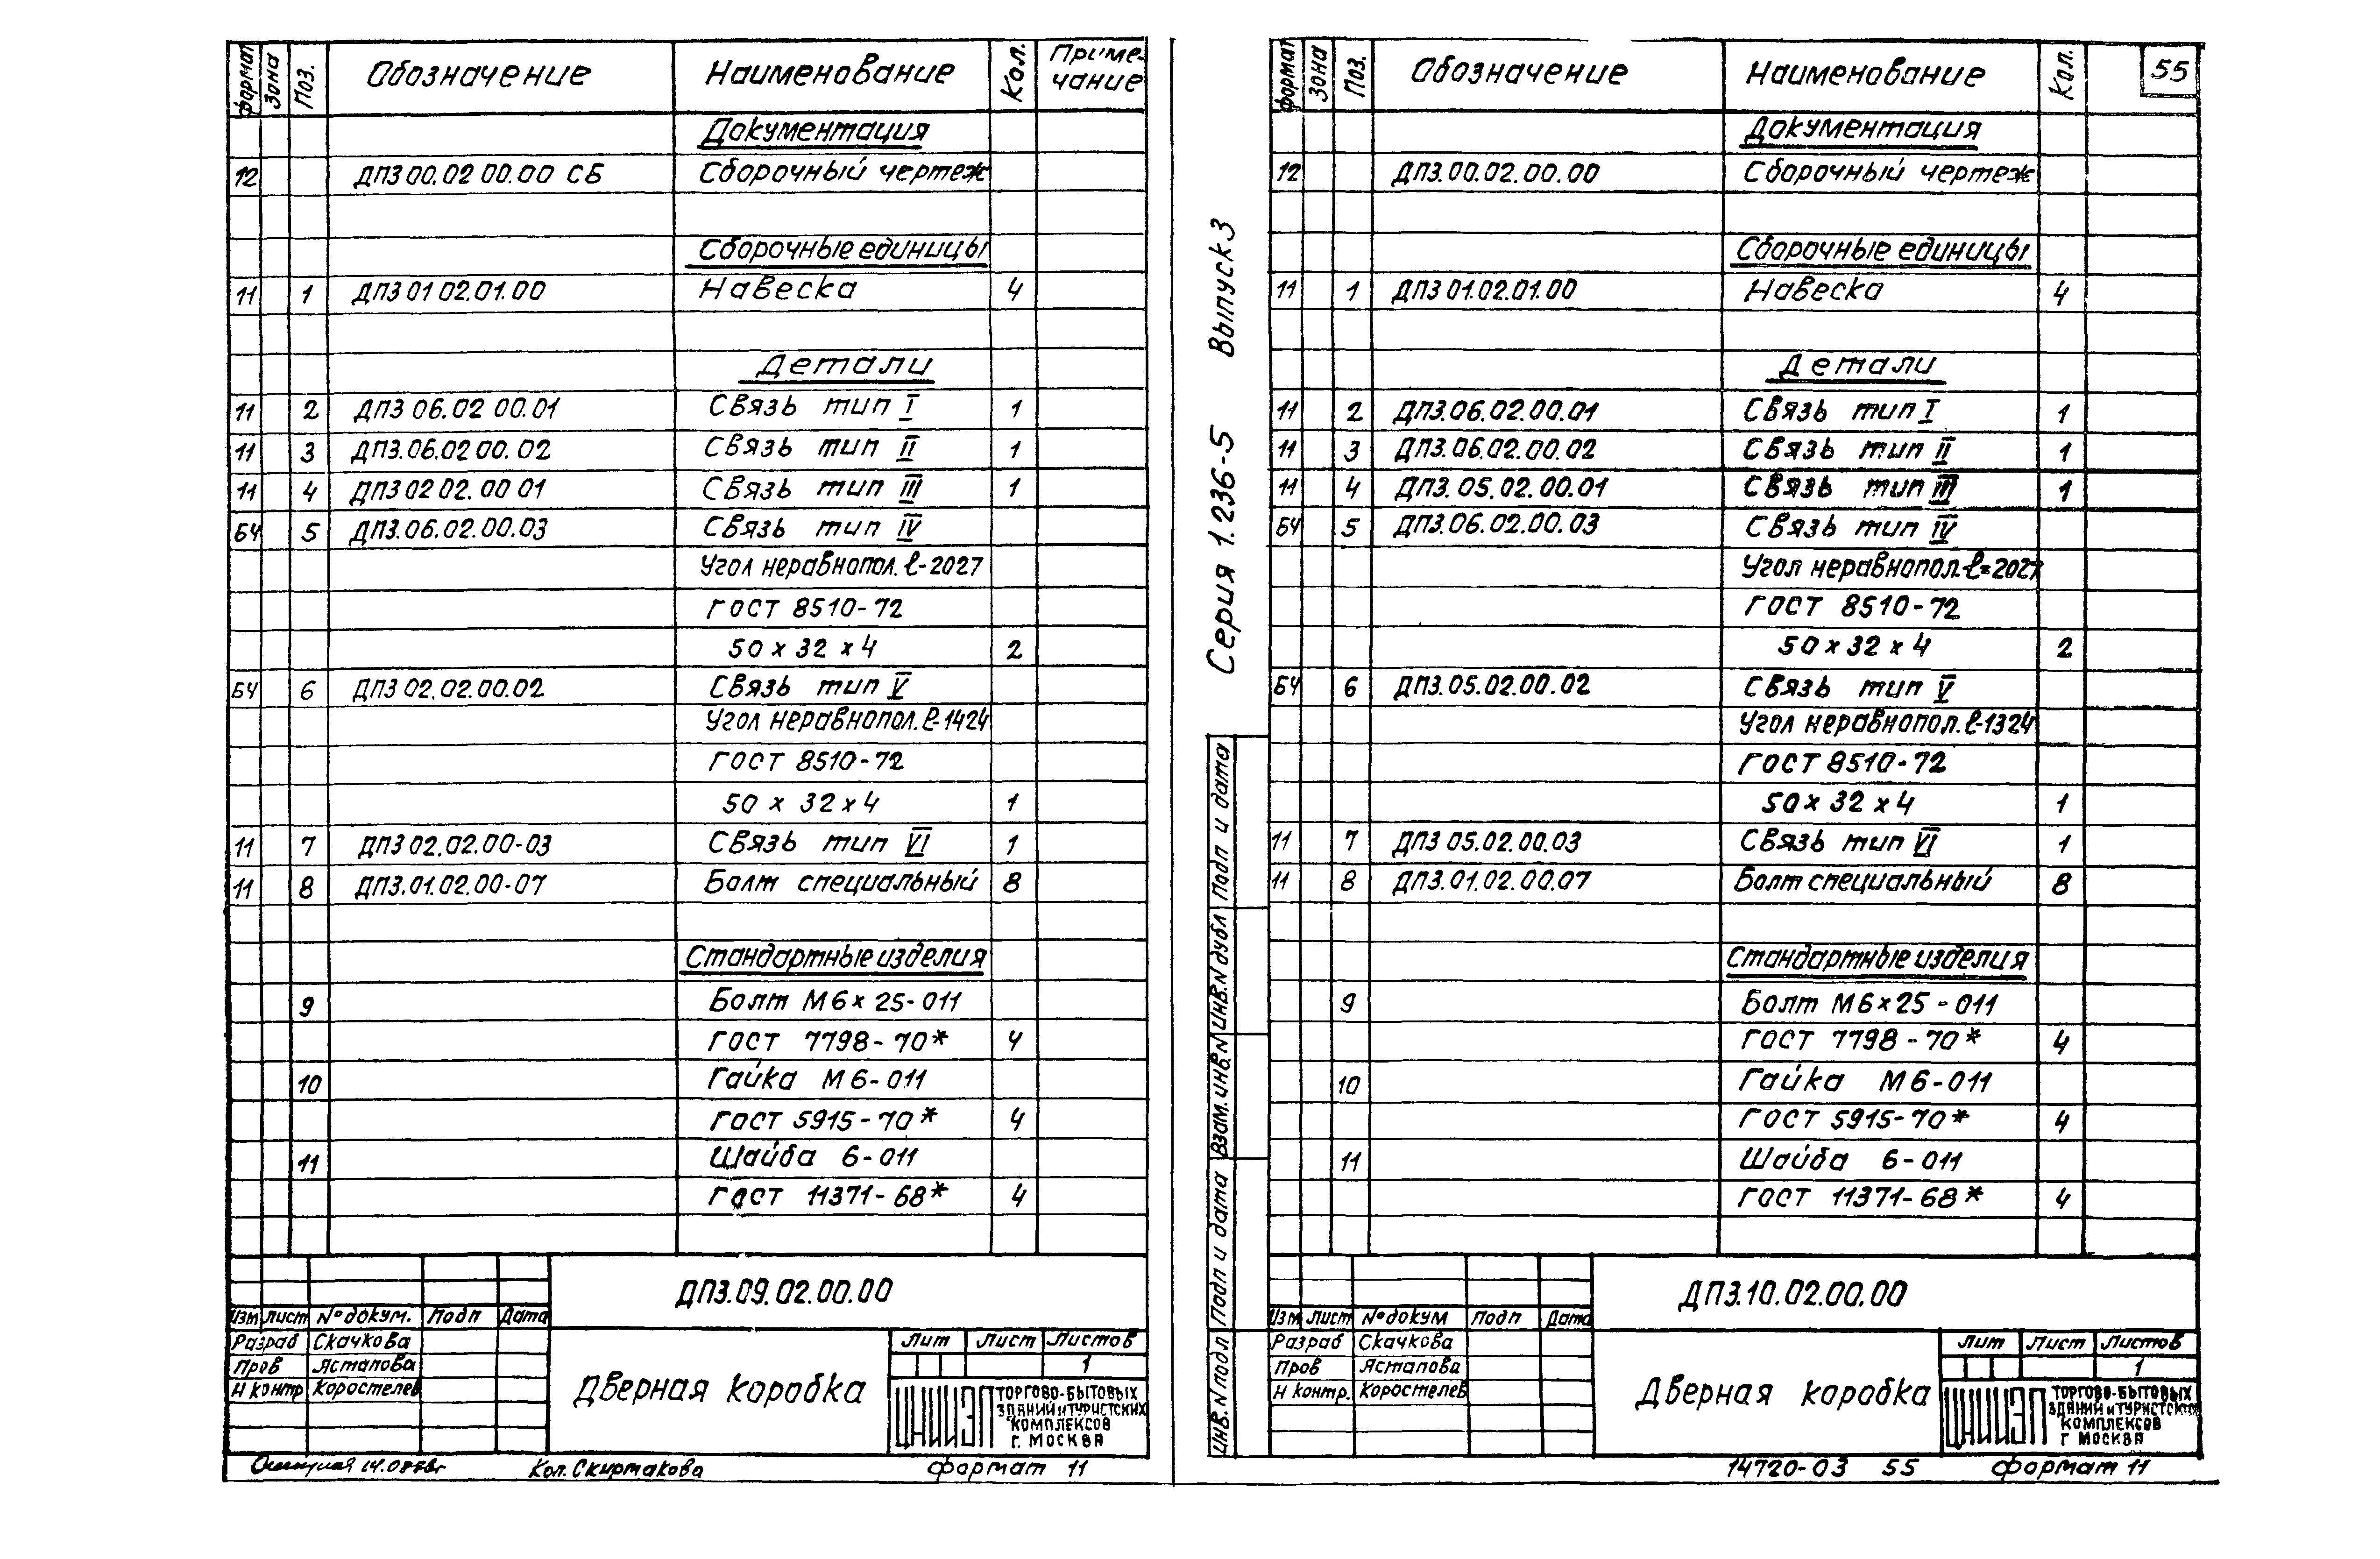 формат Зона Поз. Обозначение Наименование Кол. Приме-
чание
Документация
12 ДПЗ 00.02 00.00 СБ Сборочный чертеж
Сборочные единицы
11 1 ДПЗ 01 02.01.00 Навеска 4
Детали
11 2 ДПЗ 06.02 00.01 Связь тип I 1
11 3 ДПЗ.06.02 00.02 Связь тип II 1
11 4 ДПЗ 02 02.00 01 Связь тип III 1
БЧ 5 ДПЗ.06.02.00.03 Связь тип IV
Угол неравнопол. ℓ-2027
ГОСТ 8510-72
50 х 32 х 4 2
БЧ 6 ДПЗ 02.02.00.02 Связь тип V
Угол неравнопол. ℓ-1424
ГОСТ 8510-72
50 х 32 х 4 1
11 7 ДПЗ 02.02.00-03 Связь тип VI 1
11 8 ДПЗ.01.02.00-07 Болт специальный 8
Стандартные изделия
9 Болт М6х 25-011
ГОСТ 7798-70* 4
10 Гайка М6-011
ГОСТ 5915-70* 4
11 Шайба 6-011
ГОСТ 11371-68* 4
ДПЗ.09.02.00.00
Изм Лист № докум. Подп Дата
Разраб Скачкова
Пров Ястапова
Н контр Коростелев
Дверная коробка
Лит Лист Листов
1
ЦНИИЭП ТОРГОВО-БЫТОВЫХ
ЗДАНИЙ и ТУРИСТСКИХ
КОМПЛЕКСОВ
Г. МОСКВА
Кол. Скиртакова формат 11
Серия 1.236-5 Выпуск 3
Подп и дата
ИНВ.N дубл
Взам. ИНВ.N
Подп и дата
ИНВ.N подл
формат Зона Поз. Обозначение Наименование Кол. 55
Документация
12 ДПЗ.00.02.00.00 Сборочный чертеж
Сборочные единицы
11 1 ДПЗ 01.02.01.00 Навеска 4
Детали
11 2 ДПЗ.06.02.00.01 Связь тип I 1
11 3 ДПЗ.06.02.00.02 Связь тип II 1
11 4 ДПЗ.05.02.00.01 Связь тип III 1
БЧ 5 ДПЗ.06.02.00.03 Связь тип IV
Угол неравнопол. ℓ=2027
ГОСТ 8510-72
50 х 32 х 4 2
БЧ 6 ДПЗ.05.02.00.02 Связь тип V
Угол неравнопол. ℓ-1324
ГОСТ 8510-72
50 х 32 х 4 1
11 7 ДПЗ 05.02.00.03 Связь тип VI 1
11 8 ДПЗ.01.02.00.07 Болт специальный 8
Стандартные изделия
9 Болт М6х25-011
ГОСТ 7798-70* 4
10 Гайка М6-011
ГОСТ 5915-70* 4
11 Шайба 6-011
ГОСТ 11371-68* 4
ДПЗ.10.02.00.00
Изм Лист № докум Подп Дата
Разраб Скачкова
Пров Ястапова
Н контр. Коростелев
Дверная коробка
Лит Лист Листов
1
ЦНИИЭП ТОРГОВО-БЫТОВЫХ
ЗДАНИЙ и ТУРИСТСКИХ
КОМПЛЕКСОВ
Г МОСКВА
14720-03 55 формат 11